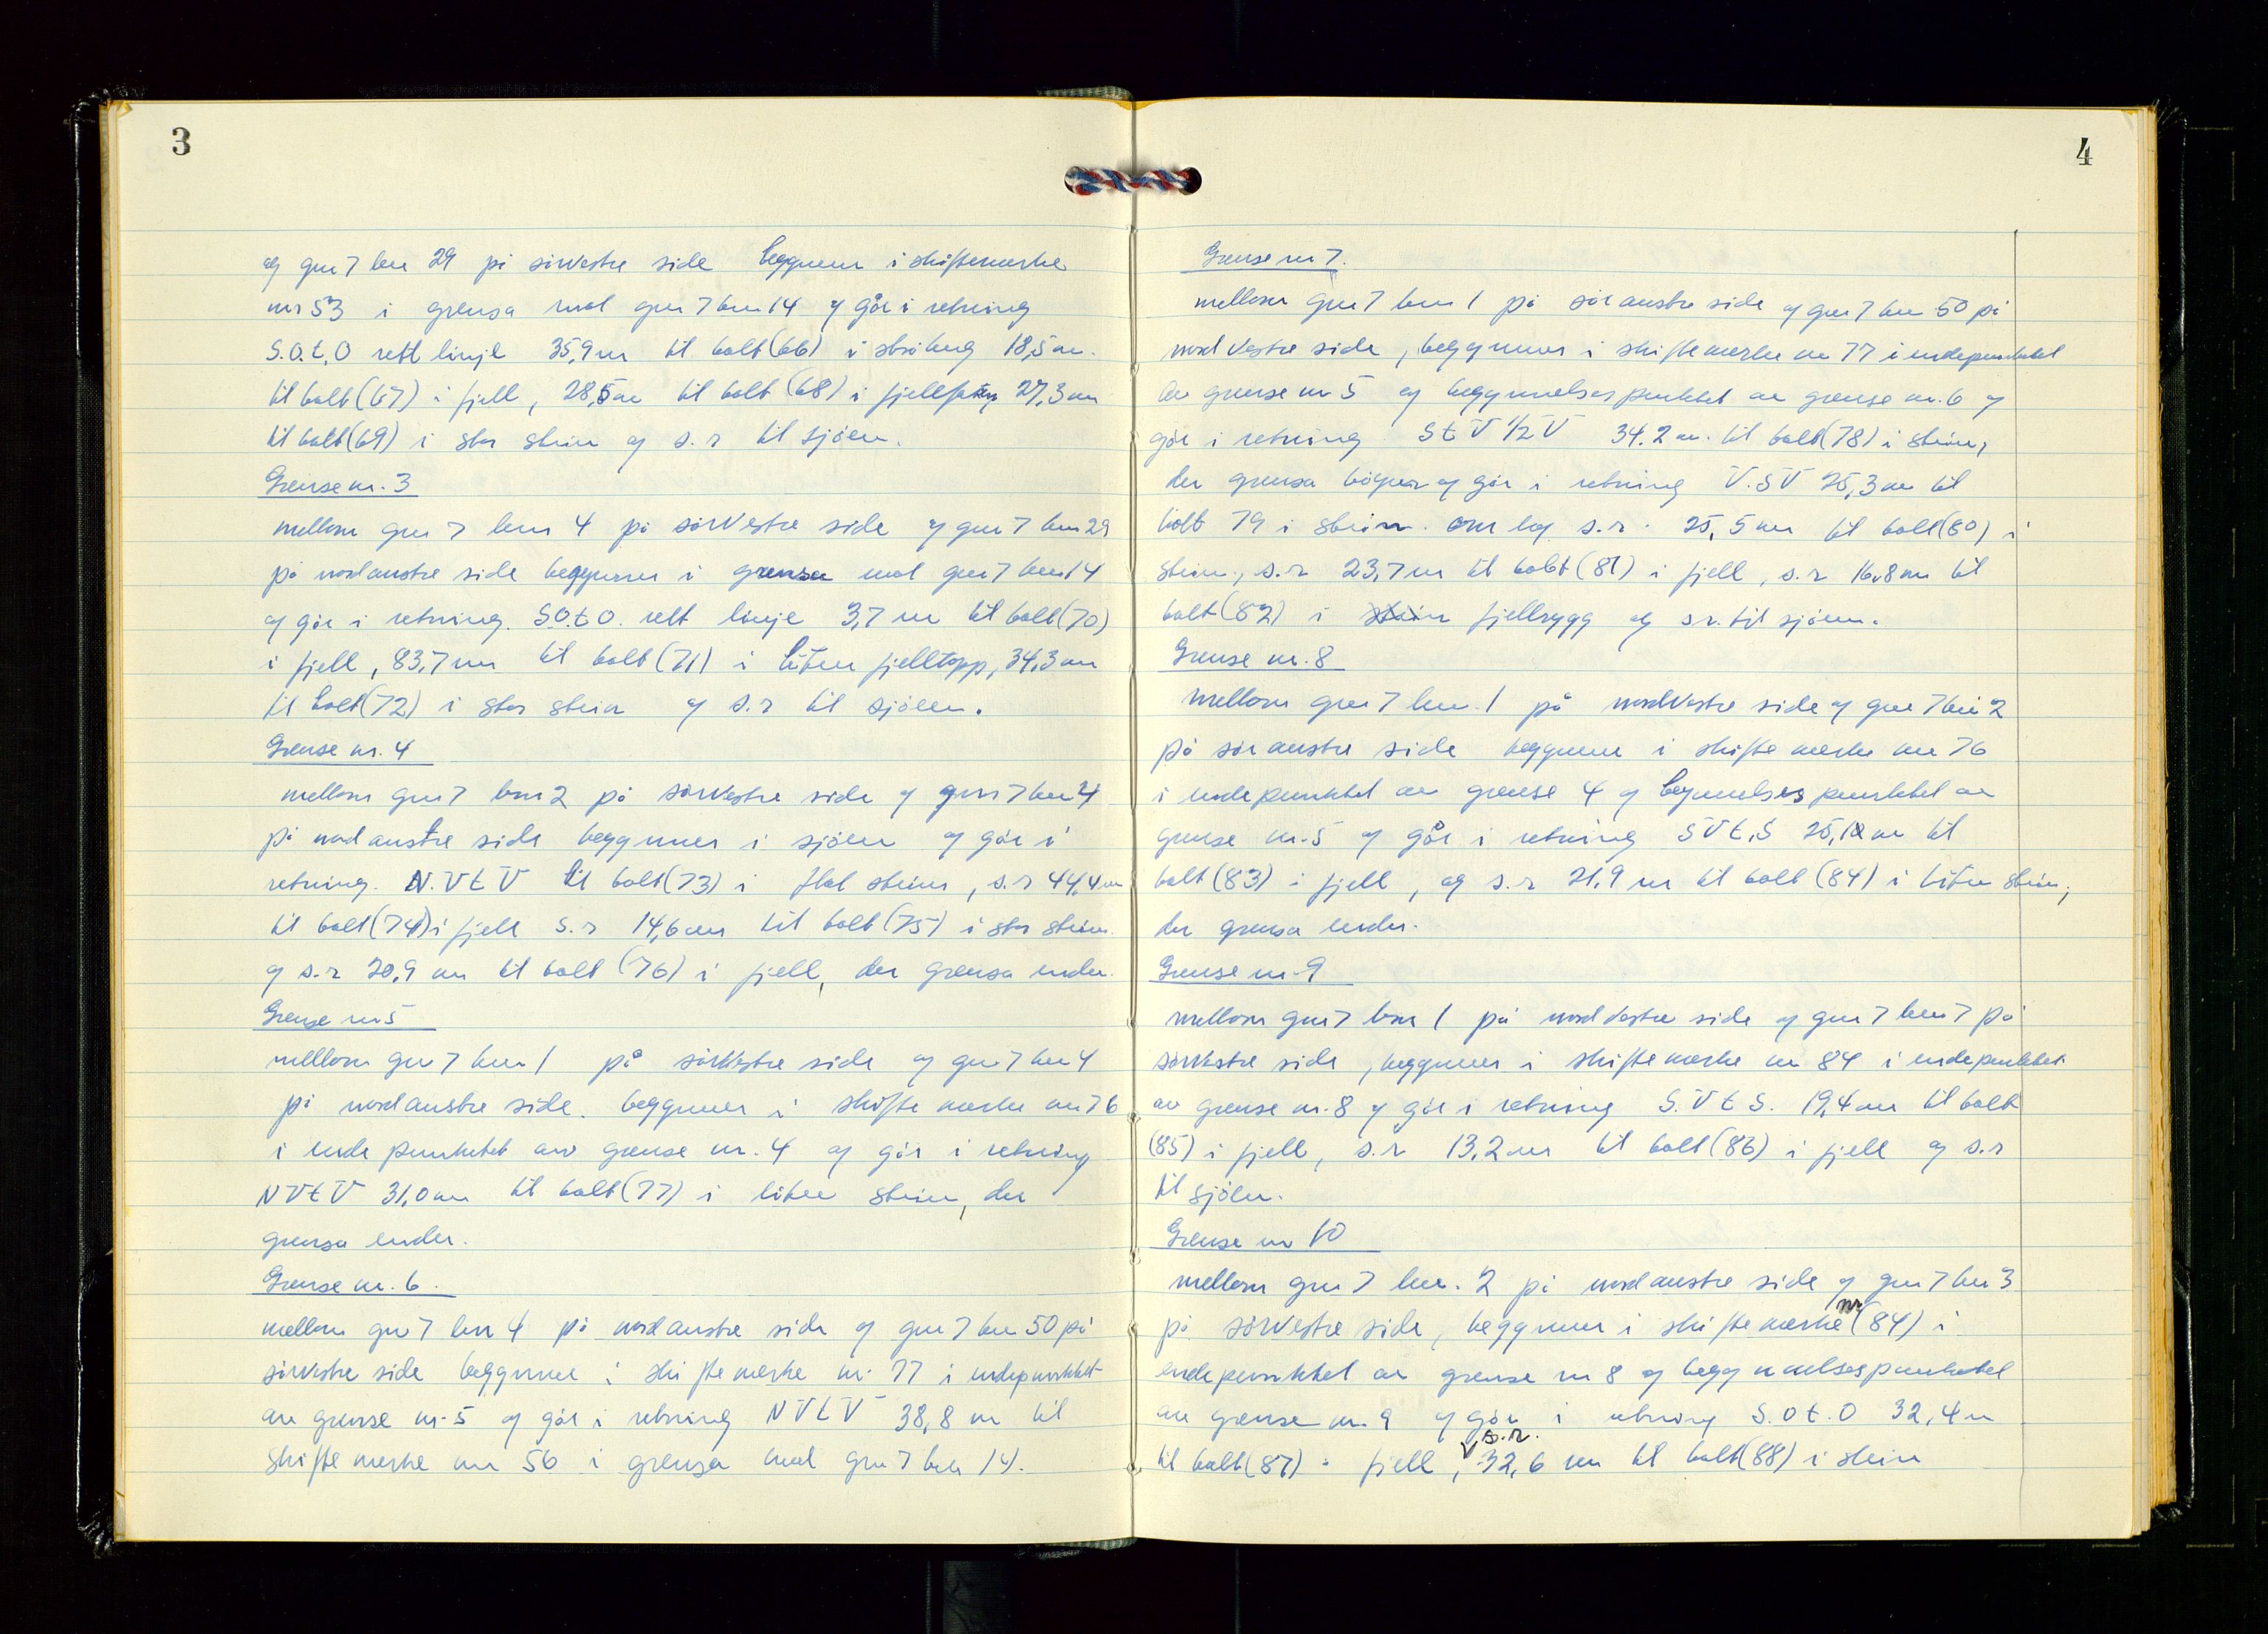 3
og gnr 7 bnr 29 på sørvestre side byggner i skiftemerke
nr 53 i grensa mot gnr 7 bnr 14 og går i retning
S.O.t.O rett linje 35,9 m til bolt (66) i 18,5 m.
til bolt (67) i fjell, 28,5 m til bolt (68) i 27,3 m
til bolt (69) i stor stein og s.r til sjøen.
Grense nr. 3
mellom gnr 7 bnr 4 på sørvestre side og gnr 7 bnr 29
på nordaustre side byggner i grensa mot gnr 7 bnr 14
og går i retning. S.O.t.O. rett linje 3,7 m til bolt (70)
i fjell, 83,7 m til bolt (71) i liten fjelltopp, 34,3 m
til bolt (72) i stor stein og s.r til sjøen.
Grense nr. 4
mellom gnr 7 bnr 2 på sørvestre side og gnr 7 bnr 4
på nordaustre side byggner i sjøen og går i
retning. N.V t V til bolt (73) i flat stein, s.r 44,4 m
til bolt (74) i fjell s.r 14,6 m til bolt (75) i stor stein
og s.r 20,9 m til bolt (76) i fjell, der grensa ender.
Grense nr 5
mellom gnr 7 bnr 1 på sørvestre side og gnr 7 bnr 4
på nordaustre side. byggner i skifte merke nr 76
i endepunktet av grense nr. 4 og går i retning
NV t V 31,0 m til bolt (77) i liten stein, der
grensa ender.
Grense nr. 6.
mellom gnr 7 bnr 4 på nordaustre side og gnr 7 bnr 50 på
sørvestre side byggner i skifte merke nr. 77 i endepunktet
av grense nr. 5 og går i retning NV t V 38,8 m til
skifte merke nr 56 i grensa mot gnr 7 bnr 14.
4
Grense nr 7.
mellom gnr 7 bnr 1 på søraustre side og gnr 7 bnr 50 på
nordvestre side, byggner i skiftemerke nr 77 i endepunktet
av grense nr 5 og byggnnelsespunktet av grense nr. 6 og
går i retning S t V 1/2 V 34.2 m. til bolt (78) i stein,
der grensa bøgner og går i retning V.SV 25,3 m til
bolt 79 i stein. om lag s.r. 25,5 m til bolt (80) i
stein, s.r 23,7 m til bolt (81) i fjell, s.r 16.8 m til
bolt (82) i stein fjellrygg og s.r. til sjøen.
Grense nr. 8
mellom gnr 7 bnr. 1 på nordvestre side og gnr 7 bnr 2
på søraustre side byggner i skifte merke nr 76
i endepunktet av grense 4 og begynnelsespunktet av
grense nr. 5 og går i retning SV t.S m til
bolt (83) i fjell, og s.r 21.9 m til bolt (84) i liten stein,
der grensa ender.
Grense nr. 9
mellom gnr 7 bnr 1 på nordvestre side og gnr 7 bnr 7 på
sørvestre side, byggner i skifte merke nr 84 i endepunktet
av grense nr. 8 og går i retning S.V t S. 19,4 m til bolt
(85) i fjell, s.r 13,2 m til bolt (86) i fjell og s.r
til sjøen.
Grense nr 10
mellom gnr 7 bnr. 2 på nordaustre side og gnr 7 bnr 3
på sørvestre side, byggner i skifte merke nr (84) i
endepunktet av grense nr 8 og begynnelsespunktet
av grense nr. 9 og går i retning S.O t.O 32,4 m
til bolt (87) i fjell, s.r. 32,6 m til bolt (88) i stein